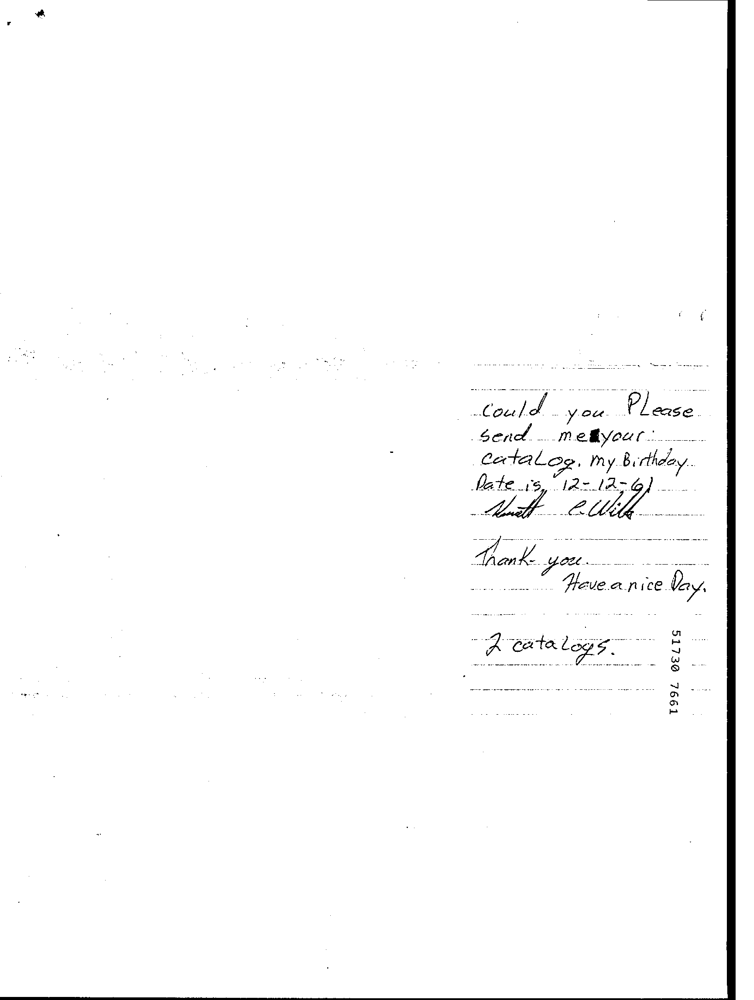 Could you PLease
send me your
cataLog. my Birthday
Date is, 12-12-61
Thank-you.
Have a nice Day.
2 cataLogs.
51730 7661